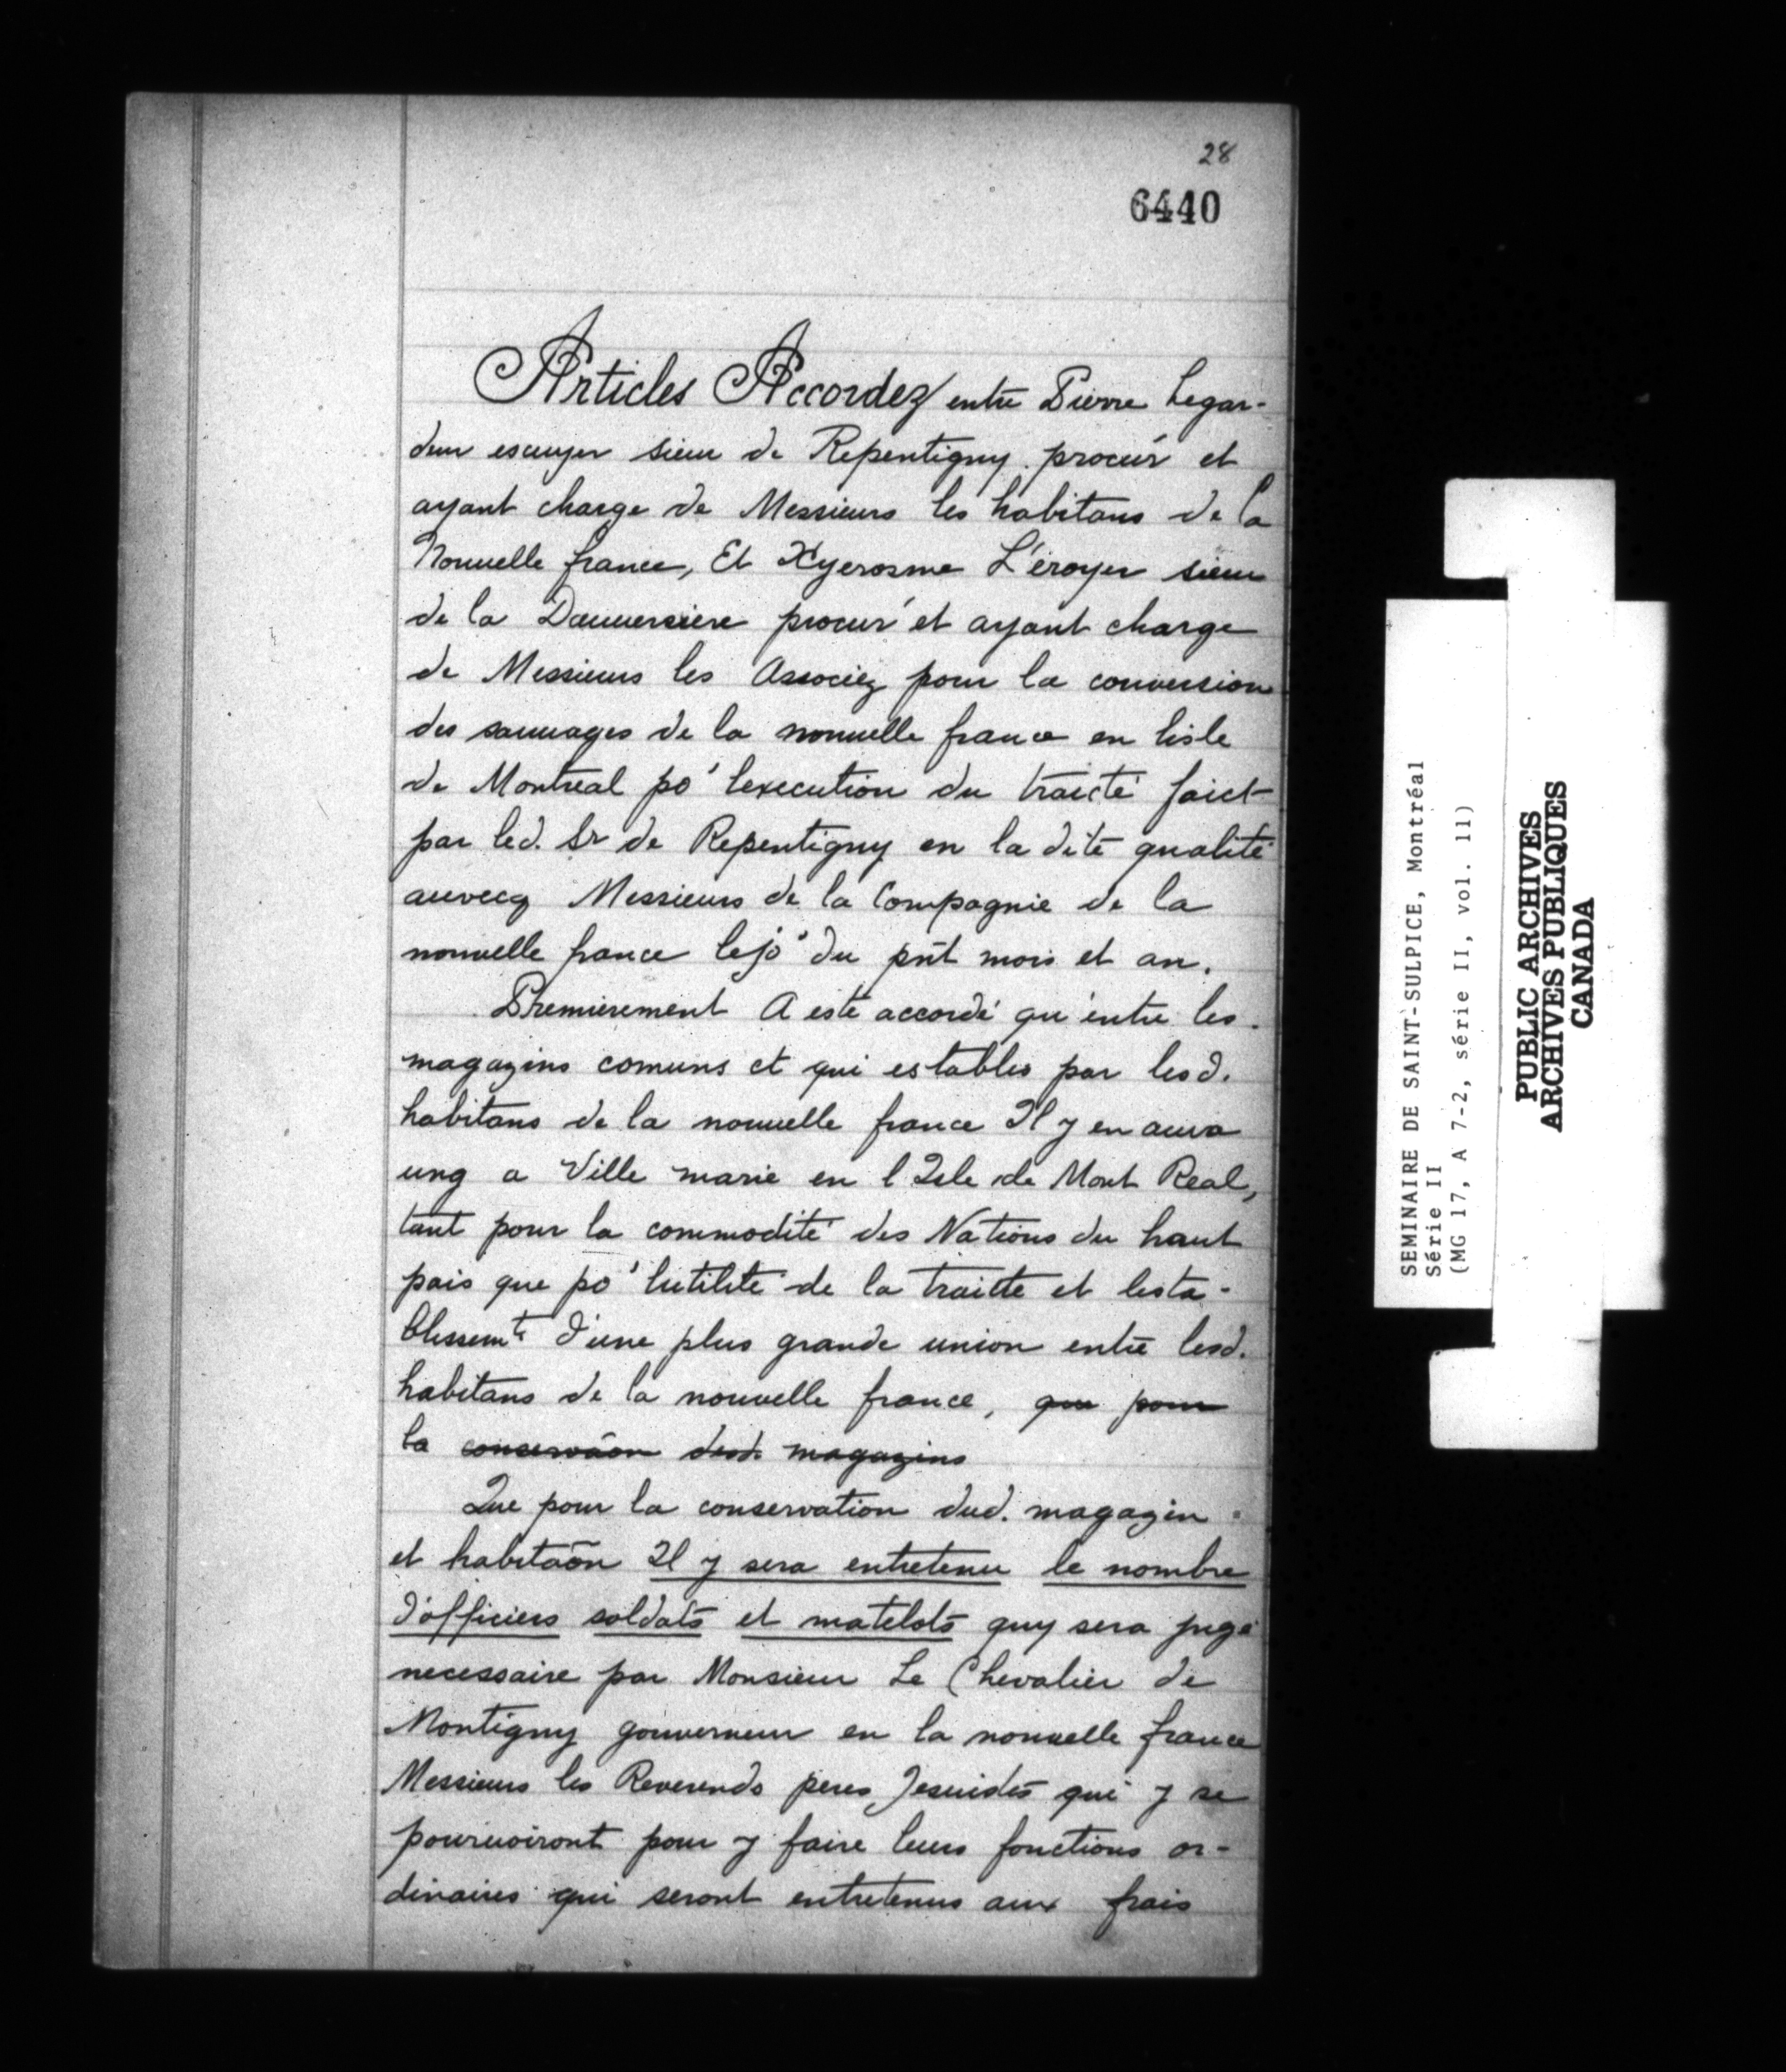 28
6440
Articles Accordez entre Pierre Legar-
deur escuyer sieur de Repentigny procur' et
ayant charge de Messieurs les habitans de la
Nouuelle france, Et Hyerosme L'éroyer sieur
de la Dauuersiere procur' et ayant charge
de Messieurs les Associez pour la conuersion
des sauuages de la nouuelle france en lisle
de Montreal po' lexecution du traicté faict
par led. Sr de Repentigny en la dite qualité
auvecq Messieurs de la Compagnie de la
nouuelle france lejo' du pnt mois et an.
Premierement A esté accordé qu'entre les
magazins comuns et qui establis par lesd.
habitans de la nouuelle france Il y en aura
ung a Ville marie en l Isle de Mont Real,
tant pour la commodité des Nations du haut
pais que po' lutilité de la traitte et lesta-
blissemt d'une plus grande union entre lesd.
habitans de la nouvelle france, que pour
la conservâon desd. magazins
Que pour la conservation dud. magazin
et habitaôn Il y sera entretenu le nombre
d'officiers soldats et matelots quy sera jugé
necessaire par Monsieur Le Chevalier de
Montigny gouverneur en la nouuelle france
Messieurs les Reverends peres Jesuistes qui y se
pouruoiront pour y faire leurs fonctions or-
dinaires qui seront entretenus aux frais
SEMINAIRE DE SAINT-SULPICE, Montréal
Série II
(MG 17, A 7-2, série II, vol. 11)
PUBLIC ARCHIVES
ARCHIVES PUBLIQUES
CANADA